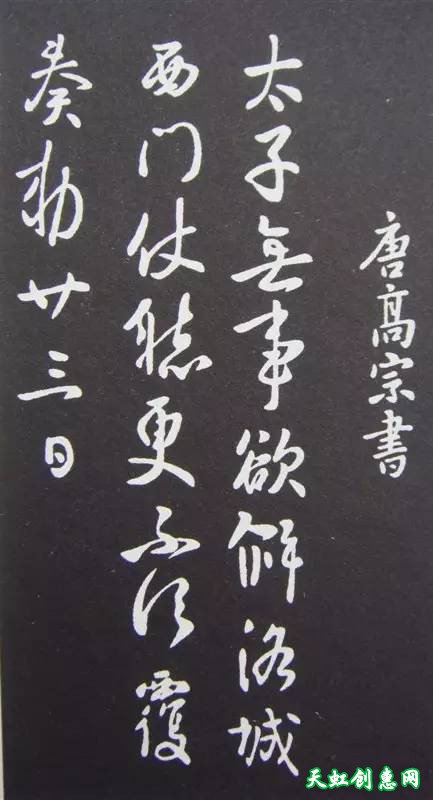 唐高宗書
太子無事欲解洛城
西门仗聴更不須覆
奏勅廿三日
天虹创意网